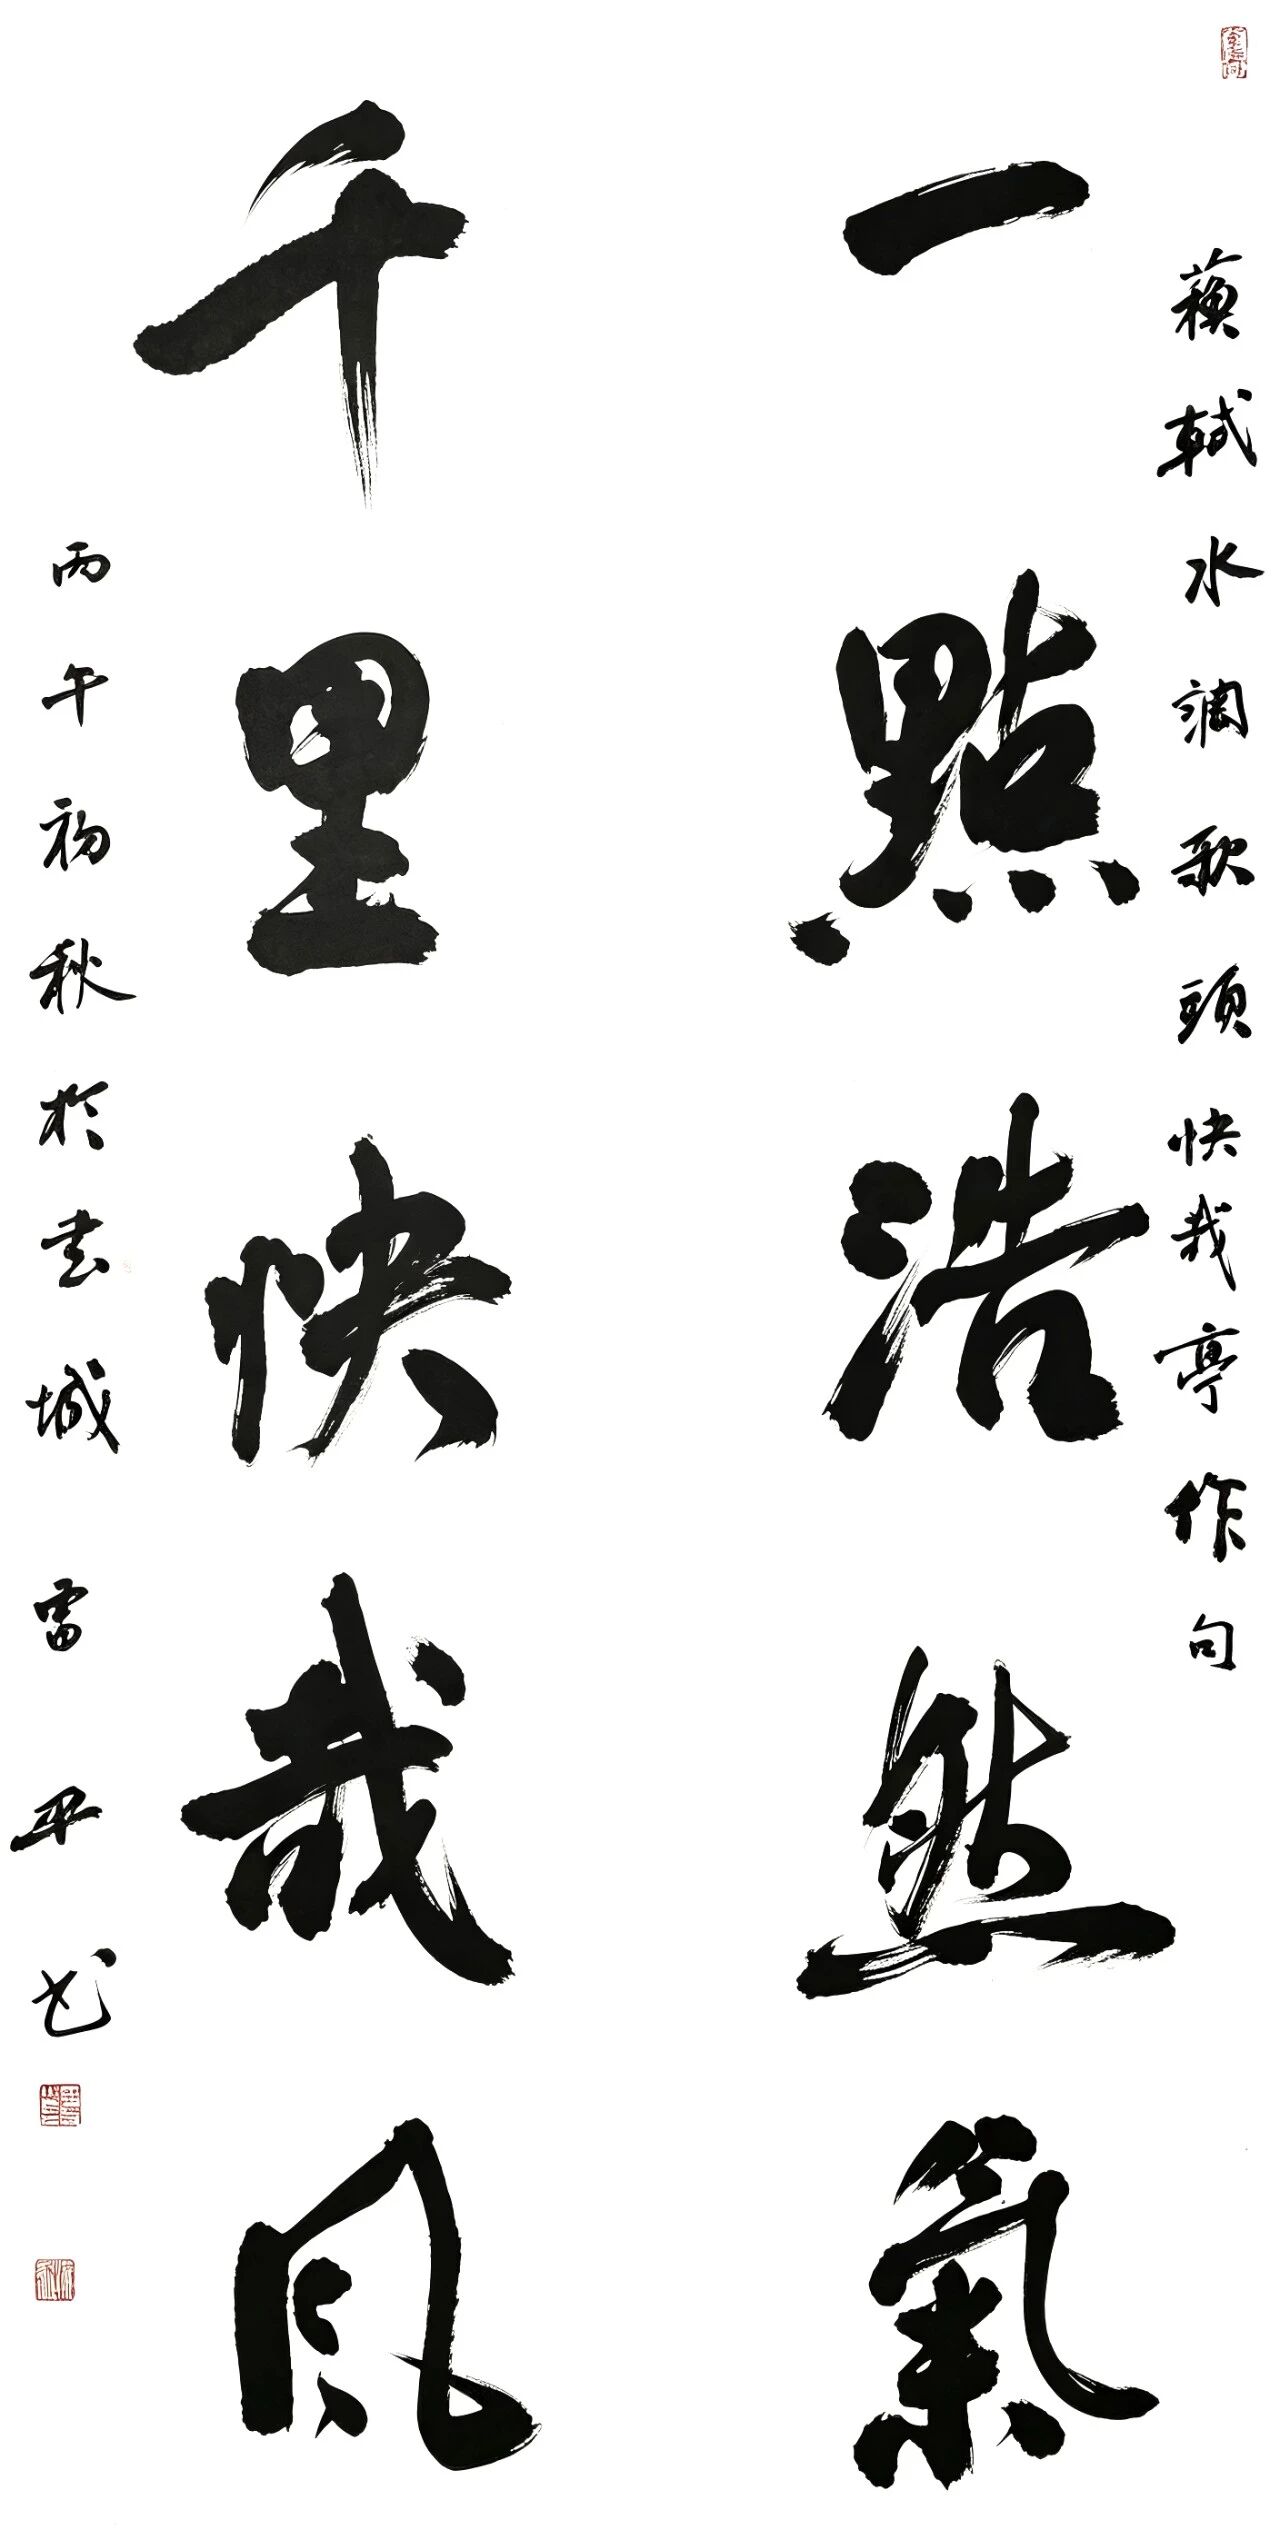 蘇軾水調歌頭快哉亭作句
一點浩然氣
千里快哉風
丙午初秋於古城雷平書